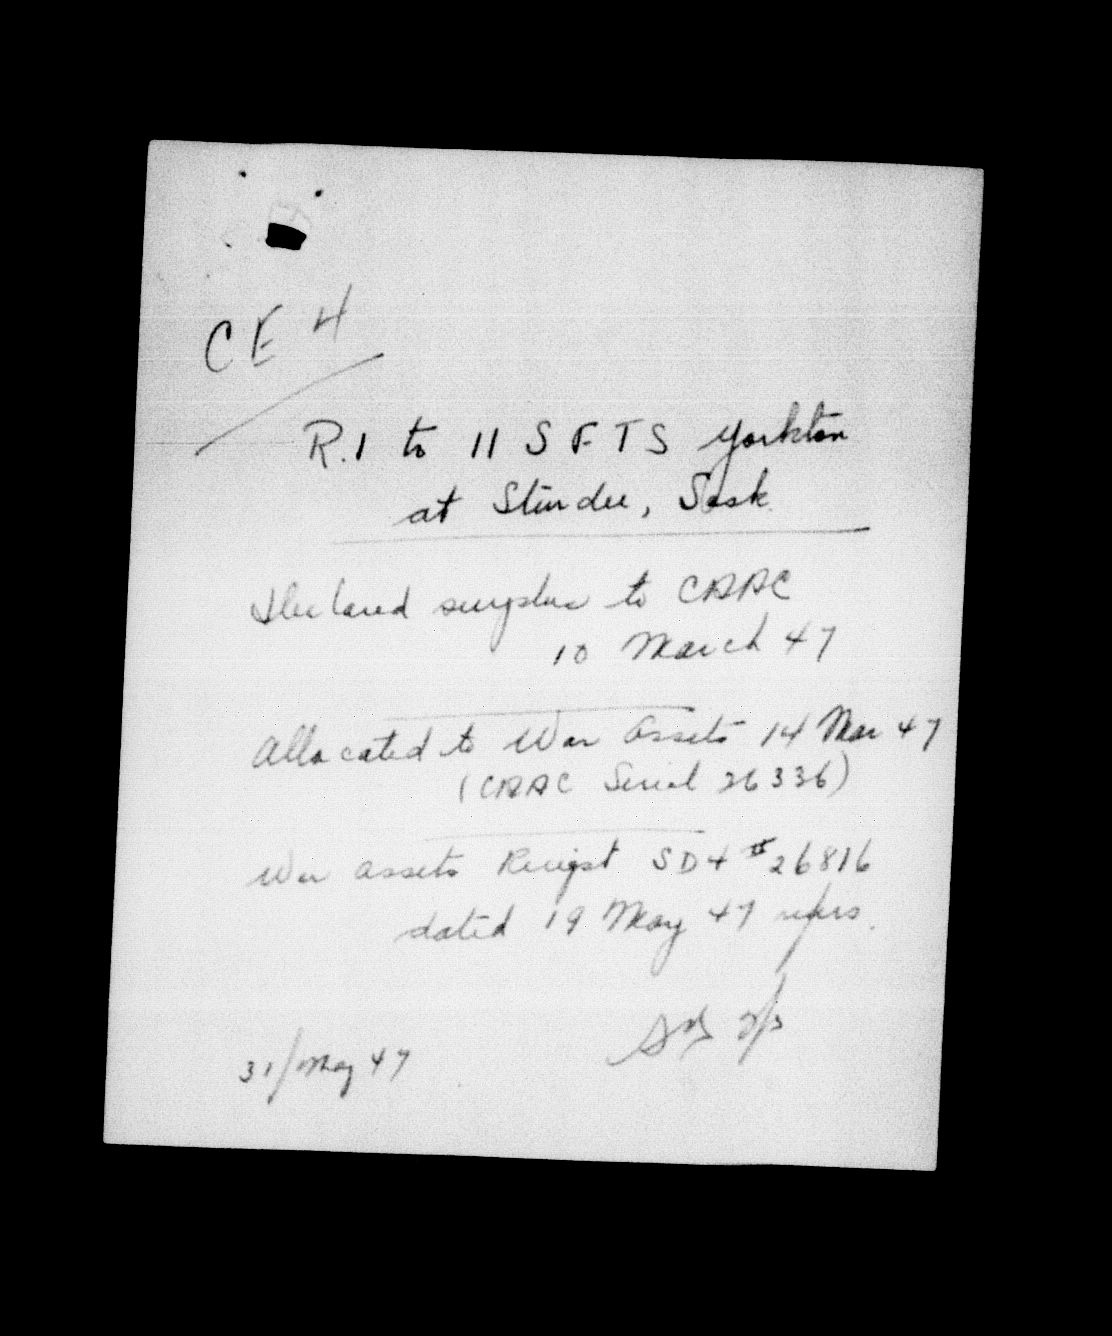 CE 4
R.1 to 11 SFTS Yorkton
at Sturdee, Sask
Declared surplus to CAAC
10 March 47
Allocated to War Assets 14 Mar 47
(CAAC Serial 26336)
War Assets Receipt SD4 #26816
dated 19 May 47 refers.
31/May 47